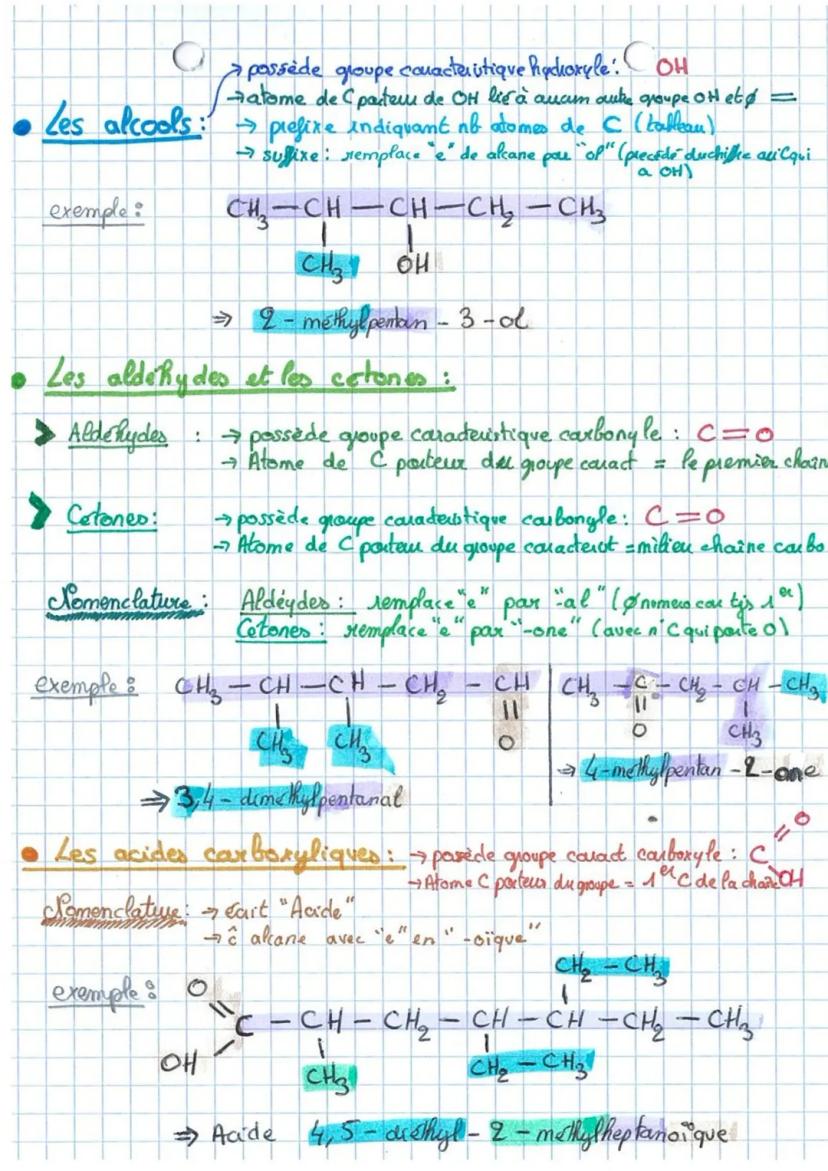 → possède groupe caractéristique hydroxyle : OH
→ atome de C porteur de OH lié à aucun autre groupe OH et ∅ =
• Les alcools :
→ prefixe indiquant nb atomes de C (tableau)
→ suffixe : remplace "e" de alkane par "ol" (precédé du chiffre au C qui
a OH)
exemple :
CH₃ — CH — CH — CH₂ — CH₃
CH₃ OH
⇒ 2 - méthylpentan - 3 - ol
• Les aldéhydes et les cetones :
> Aldéhydes : → possède groupe caractéristique carbonyle : C = O
→ Atome de C porteur du groupe caract = le premier chain
> Cetones : → possède groupe caractéristique carbonyle : C = O
→ Atome de C porteur du groupe caracterist = milieu chaîne carbo
Nomenclature : Aldéydes : remplace "e" par "-al" (∅ numero car tjs 1er)
Cetones : remplace "e" par "-one" (avec n° C qui porte O)
exemple : CH₃ — CH — CH — CH₂ — CH
CH₃ CH₃ O
⇒ 3,4 - dimethylpentanal
CH₃ — C — CH₂ — CH — CH₃
O CH₃
⇒ 4-méthylpentan - 2 - one
• Les acides carboxyliques : → posède groupe caract carboxyle : C = O
OH
→ Atome C porteur du groupe = 1er C de la chaîne
Nomenclature : → écrit "Acide"
→ ĉ alcane avec "e" en "-oïque"
exemple :
CH₂ — CH₃
O
C — CH — CH₂ — CH — CH — CH₂ — CH₃
OH
CH₃ CH₂ — CH₃
⇒ Acide 4,5 - diéthyl - 2 - méthylheptanoïque